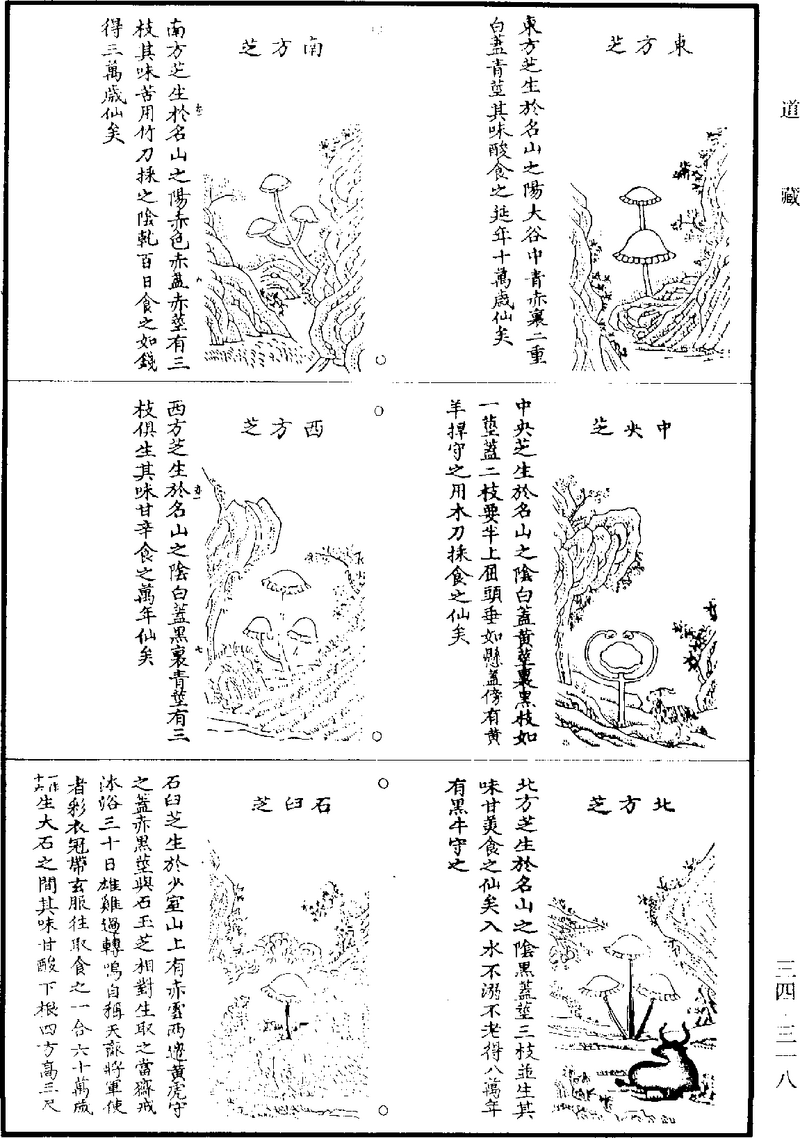 道藏
東方芝
東方芝生於名山之陽大谷中青赤裏二重
白蓋青莖其味酸食之延年十萬歲仙矣
南方芝
南方芝生於名山之陽赤色赤蓋赤莖有三
枝其味苦用竹刀採之陰乹百日食之如錢
得三萬歲仙矣
中央芝
中央芝生於名山之陰白蓋黃莖裏黑枝如
一莖蓋二枝要半上屈頭垂如懸蓋傍有黃
羊捍守之用木刀採食之仙矣
西方芝
西方芝生於名山之陰白蓋黑裏青莖有三
枝俱生其味甘辛食之萬年仙矣
北方芝
北方芝生於名山之陰黑蓋莖三枝並生其
味甘美食之仙矣入水不溺不老得八萬年
有黑牛守之
石臼芝
石臼芝生於少室山上有赤雲兩邊黃虎守
之蓋赤黑莖與石玉芝相對生取之當齋戒
沐浴三十日雄雞過轉鳴自稱天師將軍使
者彩衣冠帶玄服往取食之一合六十萬歲
生大石之間其味甘酸下根四方高三尺
三四·三一八